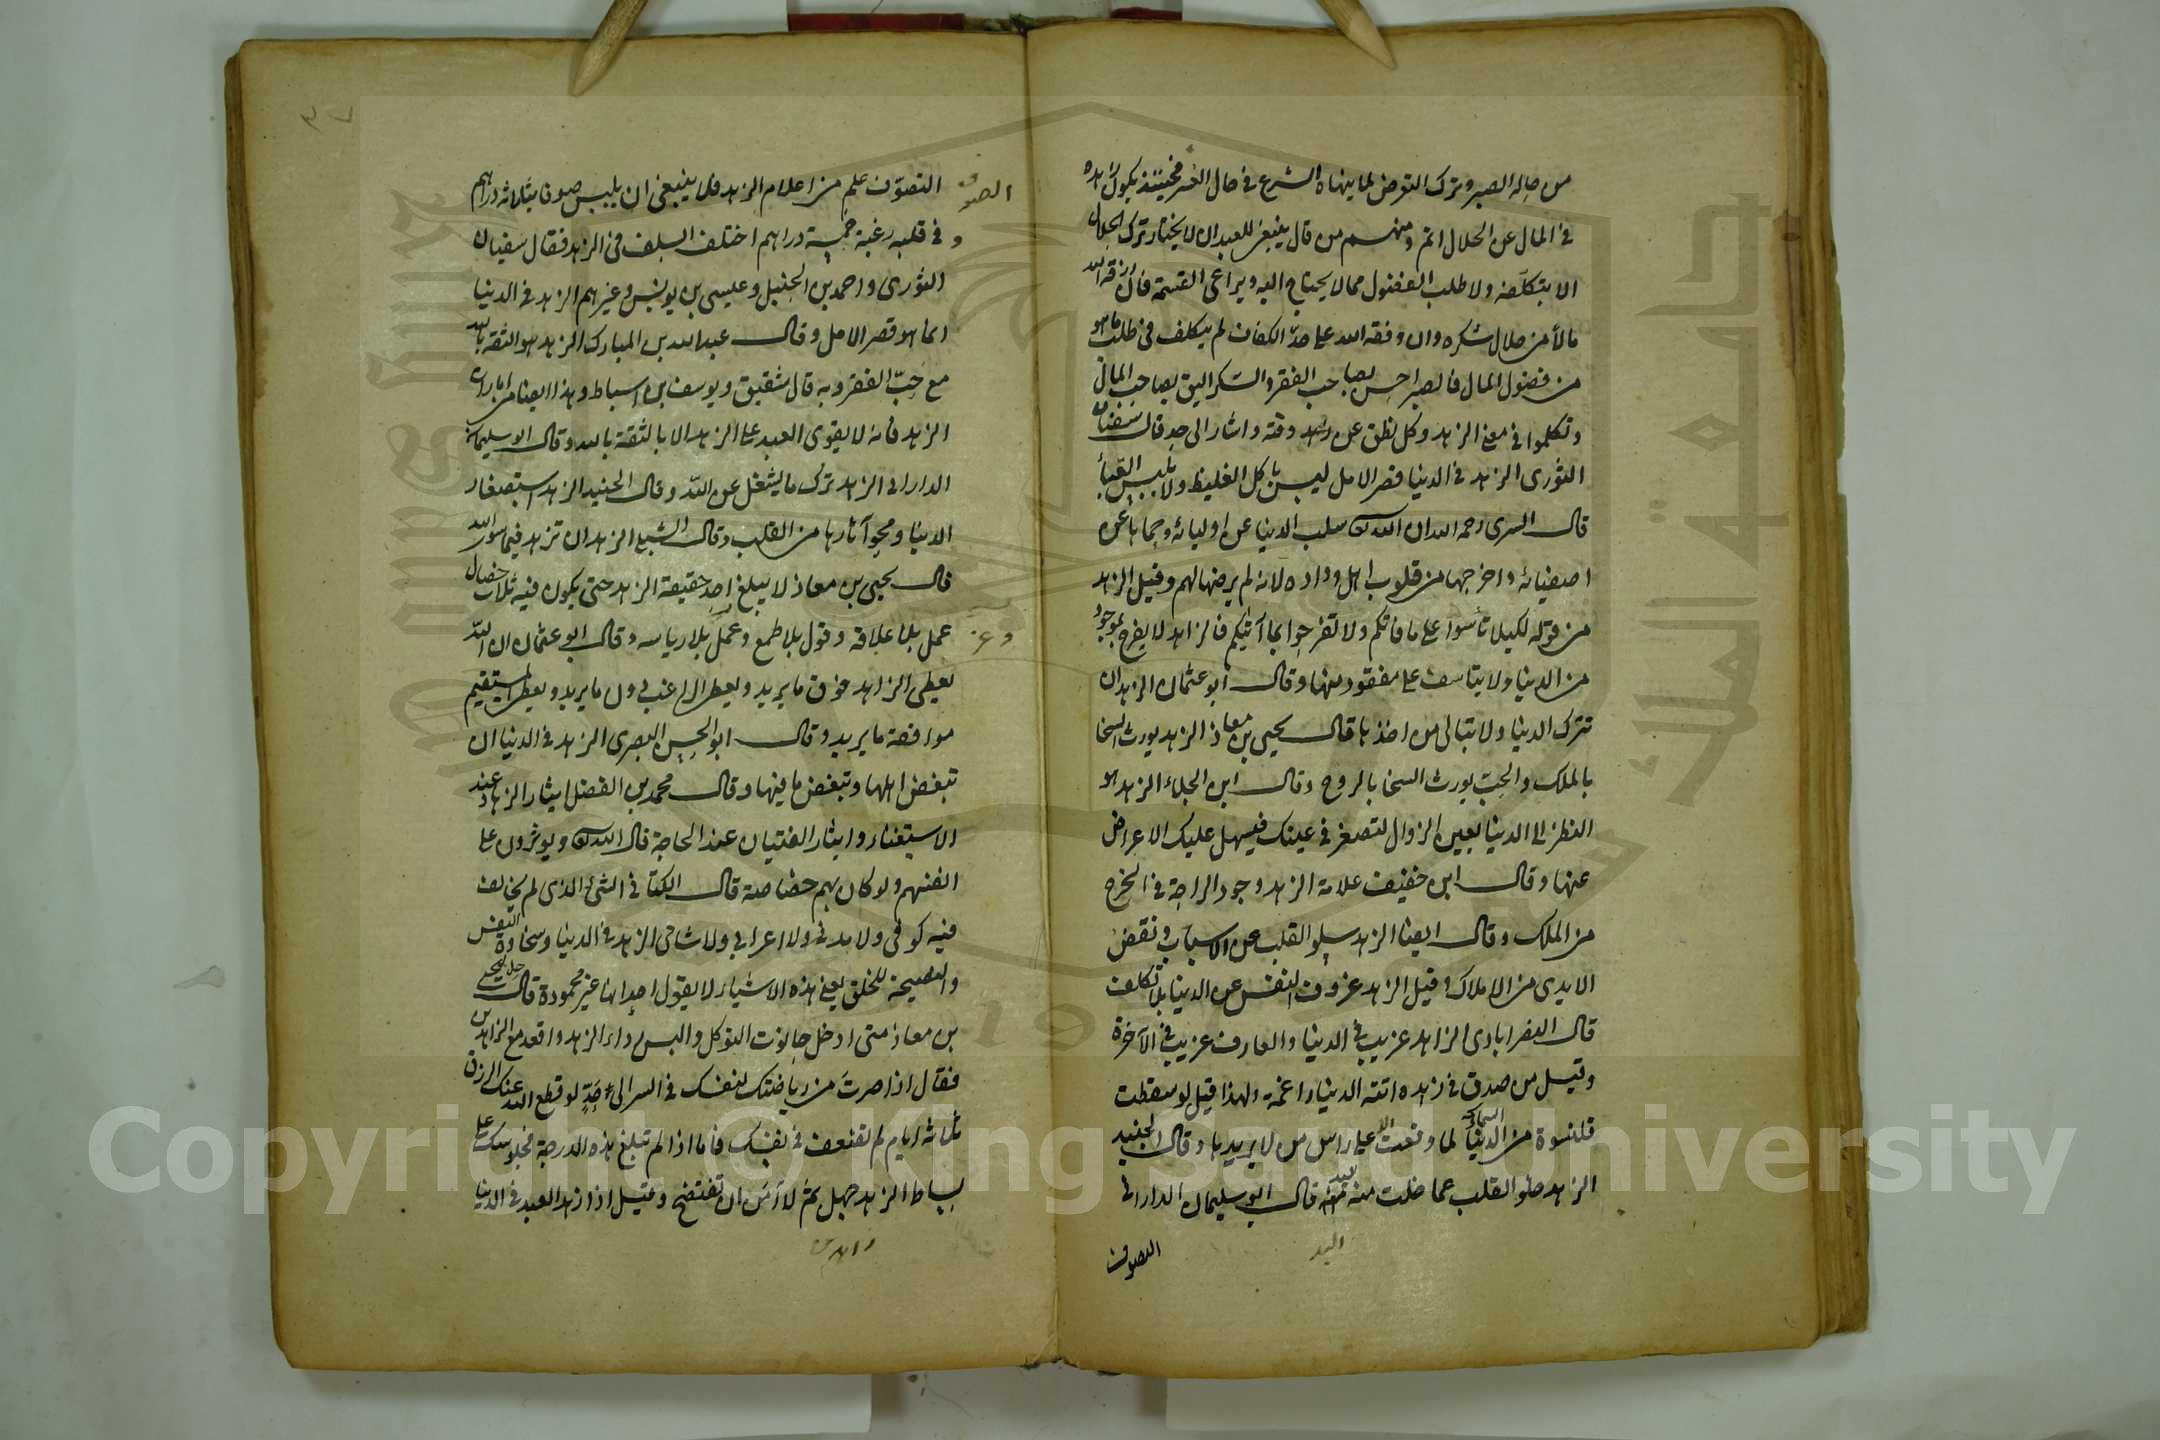 من حاله الصبر وترك التعرض لما ينهاه الشرع في حال العسر فحينئذ يكون زهده
في المال عن الحلال اتم ومنهم من قال ينبغي للعبد ان لا يختار ترك الحلال
الا بتكلفه ولا طلب الفضول مما لا يحتاج اليه ويراعي القسمة فان رزقه الله
مالا من حلال شكره وان وقفه الله على حد الكفاف لم يتكلف في طلب ما هو
من فضول المال فالصبر احسن بصاحب الفقر والشكر اليق بصاحب المال
وتكلموا في معنى الزهد وكل نطق عن وقته واشار الى حده قال سفيان
الثوري الزهد في الدنيا قصر الامل ليس باكل الغليظ ولا بلبس العباء
قال السري رحمه الله ان الله سلب الدنيا عن اوليائه وحماها عن
اصفيائه واخرجها من قلوب اهل وداده لانه لم يرضها لهم وقيل الزهد
من قوله لكيلا تأسوا على ما فاتكم ولا تفرحوا بما آتيكم فالزاهد لا يفرح بموجود
من الدنيا ولا يتأسف على مفقود منها وقال ابو عثمان الزهد ان
تترك الدنيا ولا تبالي من اخذها قال يحيى بن معاذ الزهد يورث السخا
بالملك والحب يورث السخا بالروح وقال ابن الجلاء الزهد هو
النظر الى الدنيا بعين الزوال لتصغر في عينك فيسهل عليك الاعراض
عنها وقال ابن خفيف علامة الزهد وجود الراحة في الخرج
من الملك وقال ايضا الزهد سلو القلب عن الاسباب ونفض
الايدي من الاملاك وقيل الزهد عزوف النفس عن الدنيا بلا تكلف
قال النصراباذي الزاهد غريب في الدنيا والعارف غريب في الآخرة
وقيل من صدق في زهده اتته الدنيا راغمة ولهذا قيل لو سقطت
قلنسوة من السماء لما وقعت الا على راس من لا يريدها وقال الجنيد
الزهد خلو القلب عما خلت منه اليد قال ابو سليمان الداراني
اليد
التصوف
٣٧
الصوف
التصوف علم من اعلام الزهد فلا ينبغي ان يلبس صوفا بثلاثة دراهم
وفي قلبه رغبة خمسة دراهم اختلف السلف في الزهد فقال سفيان
الثوري واحمد بن الحنبل وعيسى بن يونس وغيرهم الزهد في الدنيا
انما هو قصر الامل وقال عبد الله بن المبارك الزهد هو الثقة بالله
مع حب الفقر وبه قال شقيق ويوسف بن اسباط وهذا ايضا من امارات
الزهد فانه لا يقوى العبد على الزهد الا بالثقة بالله وقال ابو سليمان
الداراني الزهد ترك ما يشغل عن الله وقال الجنيد الزهد استصغار
الدنيا ومحو آثارها من القلب وقال الشبلي الزهد ان تزهد فيما سوى الله
قال يحيى بن معاذ لا يبلغ احد حقيقة الزهد حتى يكون فيه ثلاث خصال
عمل بلا علاقة وقول بلا طمع وعمل بلا رياسه وقال ابو عثمان ان الله
وعز
يعطي الزاهد فوق ما يريد ويعطي الراغب دون ما يريد ويعطي المستقيم
موافقة ما يريد وقال ابو الحسن البصري الزهد في الدنيا ان
تبغض اهلها وتبغض ما فيها وقال محمد بن الفضل ايثار الزهاد عند
الاستغناء وايثار الفتيان عند الحاجة قال الله ويوثرون على
انفسهم ولو كان بهم خصاصة قال الكتاني الشئ الذي لم يخالف
فيه كوفي ولا مدني ولا عراقي ولا شامي الزهد في الدنيا وسخاوة النفس
والنصيحة للخلق يعني هذه الاشياء لا يقول احد انها غير محمودة قال رجل ليحيى
بن معاذ متى ادخل حانوت التوكل والبس رداء الزهد واقعد مع الزاهدين
فقال اذا صرت من رياضتك لنفسك في السر الى حد لو قطع الله عنك الرزق
ثلاثة ايام لم تضعف في نفسك فاما اذا لم تبلغ هذه الدرجة فجلوسك على
بساط الزهد جهل ثم لا آمن ان تفتضح وقيل اذا زهد العبد في الدنيا
Copyright © King Saud University
جامعة الملك سعود
1957